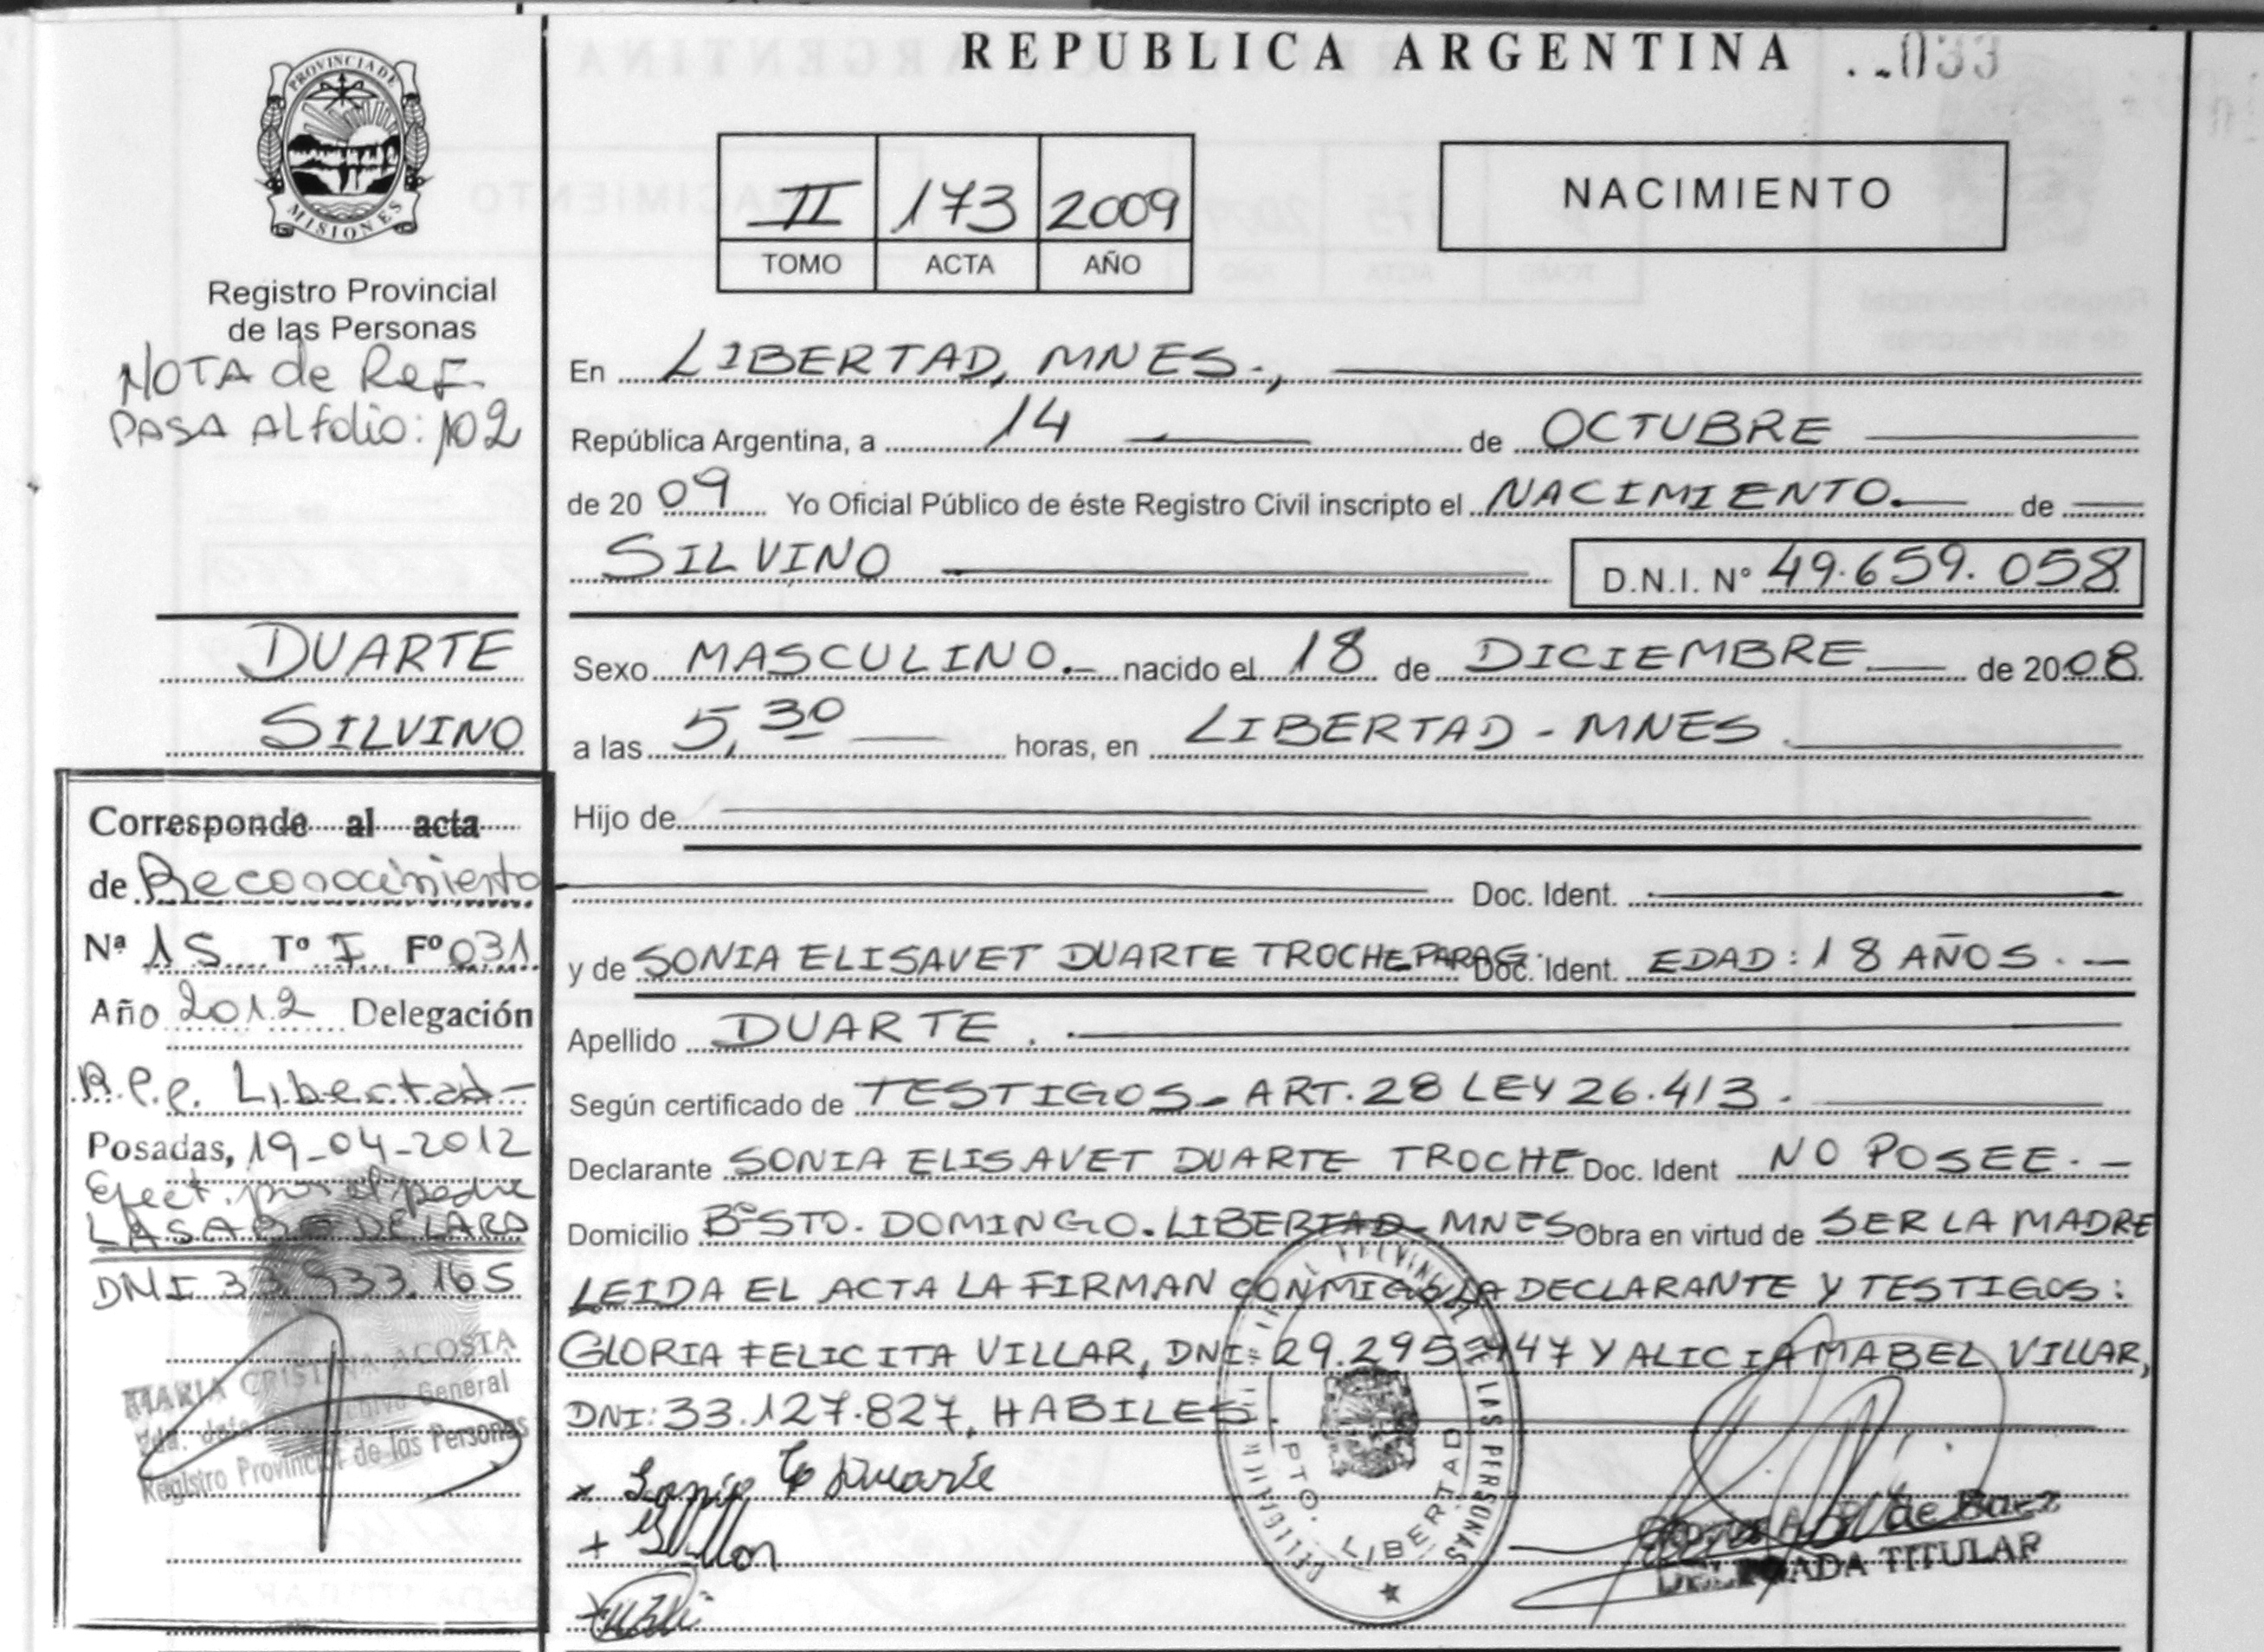 REPUBLICA ARGENTINA
033
PROVINCIA DE
MISIONES
Registro Provincial
de las Personas
NOTA de Ref.
PASA Al folio: 102
DUARTE
SILVINO
Corresponde al acta
de Reconocimiento
Nª 15 Tº I Fº 031
Año 2012 Delegación
R.P.P. Libertad-
Posadas, 19-04-2012
Efect. por el padre
DE LARA
DNI 33.933.165
MARIA CRISTINA ACOSTA
General
Registro Provincial de las Personas
II 173 2009
TOMO ACTA AÑO
NACIMIENTO
En LIBERTAD, MNES.,
República Argentina, a 14 de OCTUBRE
de 20 09 Yo Oficial Público de éste Registro Civil inscripto el NACIMIENTO. de
SILVINO D.N.I. Nº 49.659.058
Sexo MASCULINO.- nacido el 18 de DICIEMBRE de 20 08
a las 5,30 horas, en LIBERTAD - MNES.
Hijo de
Doc. Ident.
y de SONIA ELISAVET DUARTE TROCHE PARAG. Doc. Ident. EDAD: 18 AÑOS. -
Apellido DUARTE.
Según certificado de TESTIGOS - ART. 28 LEY 26.413.
Declarante SONIA ELISAVET DUARTE TROCHE Doc. Ident NO POSEE. -
Domicilio Bº STO. DOMINGO. LIBERTAD - MNES Obra en virtud de SER LA MADRE
LEIDA EL ACTA LA FIRMAN CONMIGO LA DECLARANTE Y TESTIGOS:
GLORIA FELICITA VILLAR, DNI: 29.295.447 Y ALICIA MABEL VILLAR,
DNI: 33.127.827, HABILES.
Sonia E Duarte
DE LAS PERSONAS
PTO. LIBERTAD
de Baez
DELEGADA TITULAR